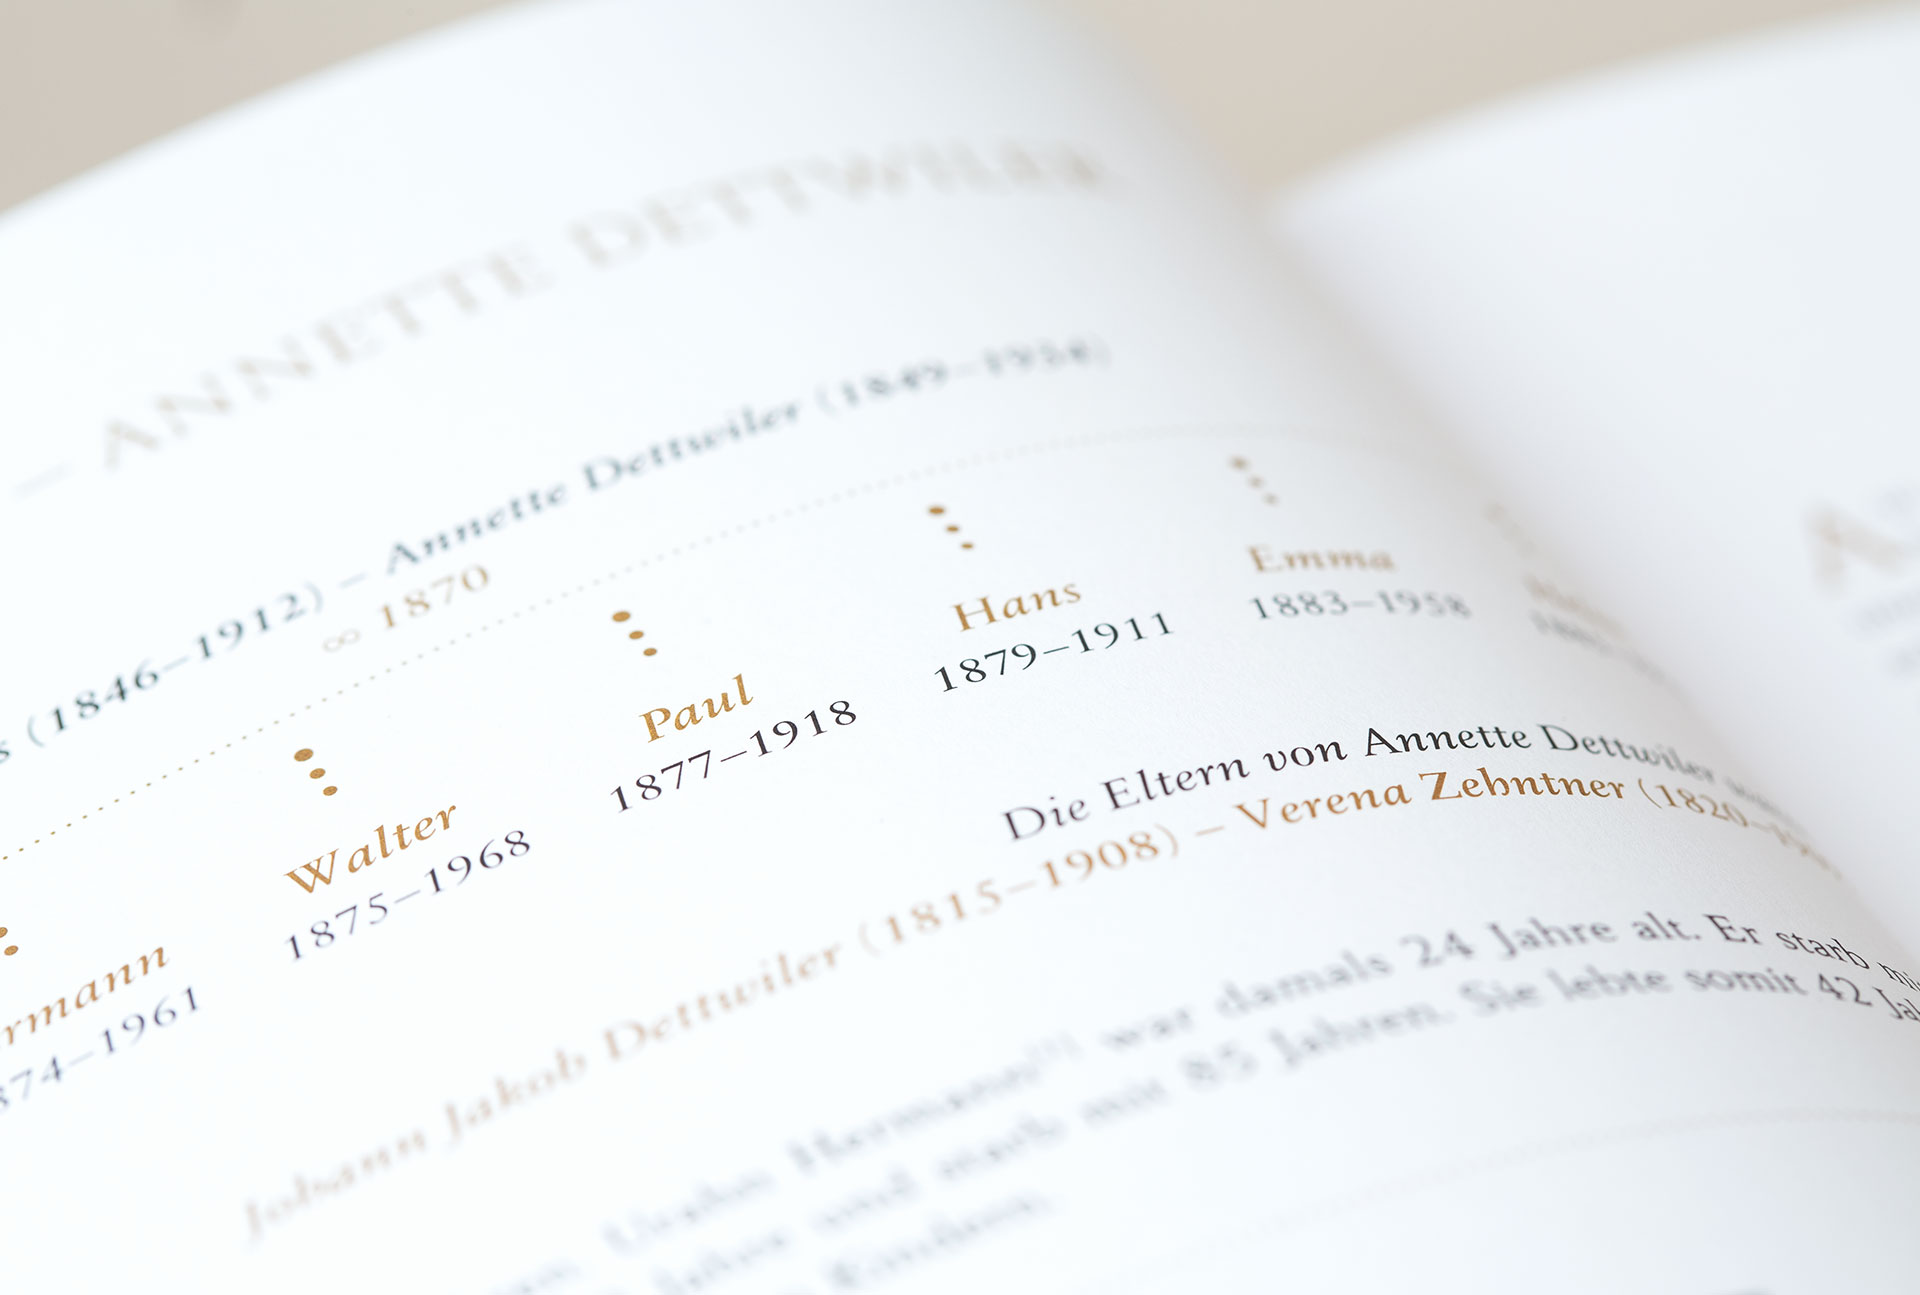 — ANNETTE DETTWILER
(1846–1912) – Annette Dettwiler (1849–1934)
∞ 1870
Walter
1875–1968
Paul
1877–1918
Hans
1879–1911
Emma
1883–1958
Die Eltern von Annette Dettwiler
Johann Jakob Dettwiler (1815–1908) – Verena Zehntner (1820–
Hermann[1] war damals 24 Jahre alt. Er starb
Jahre und starb mit 85 Jahren. Sie lebte somit 42